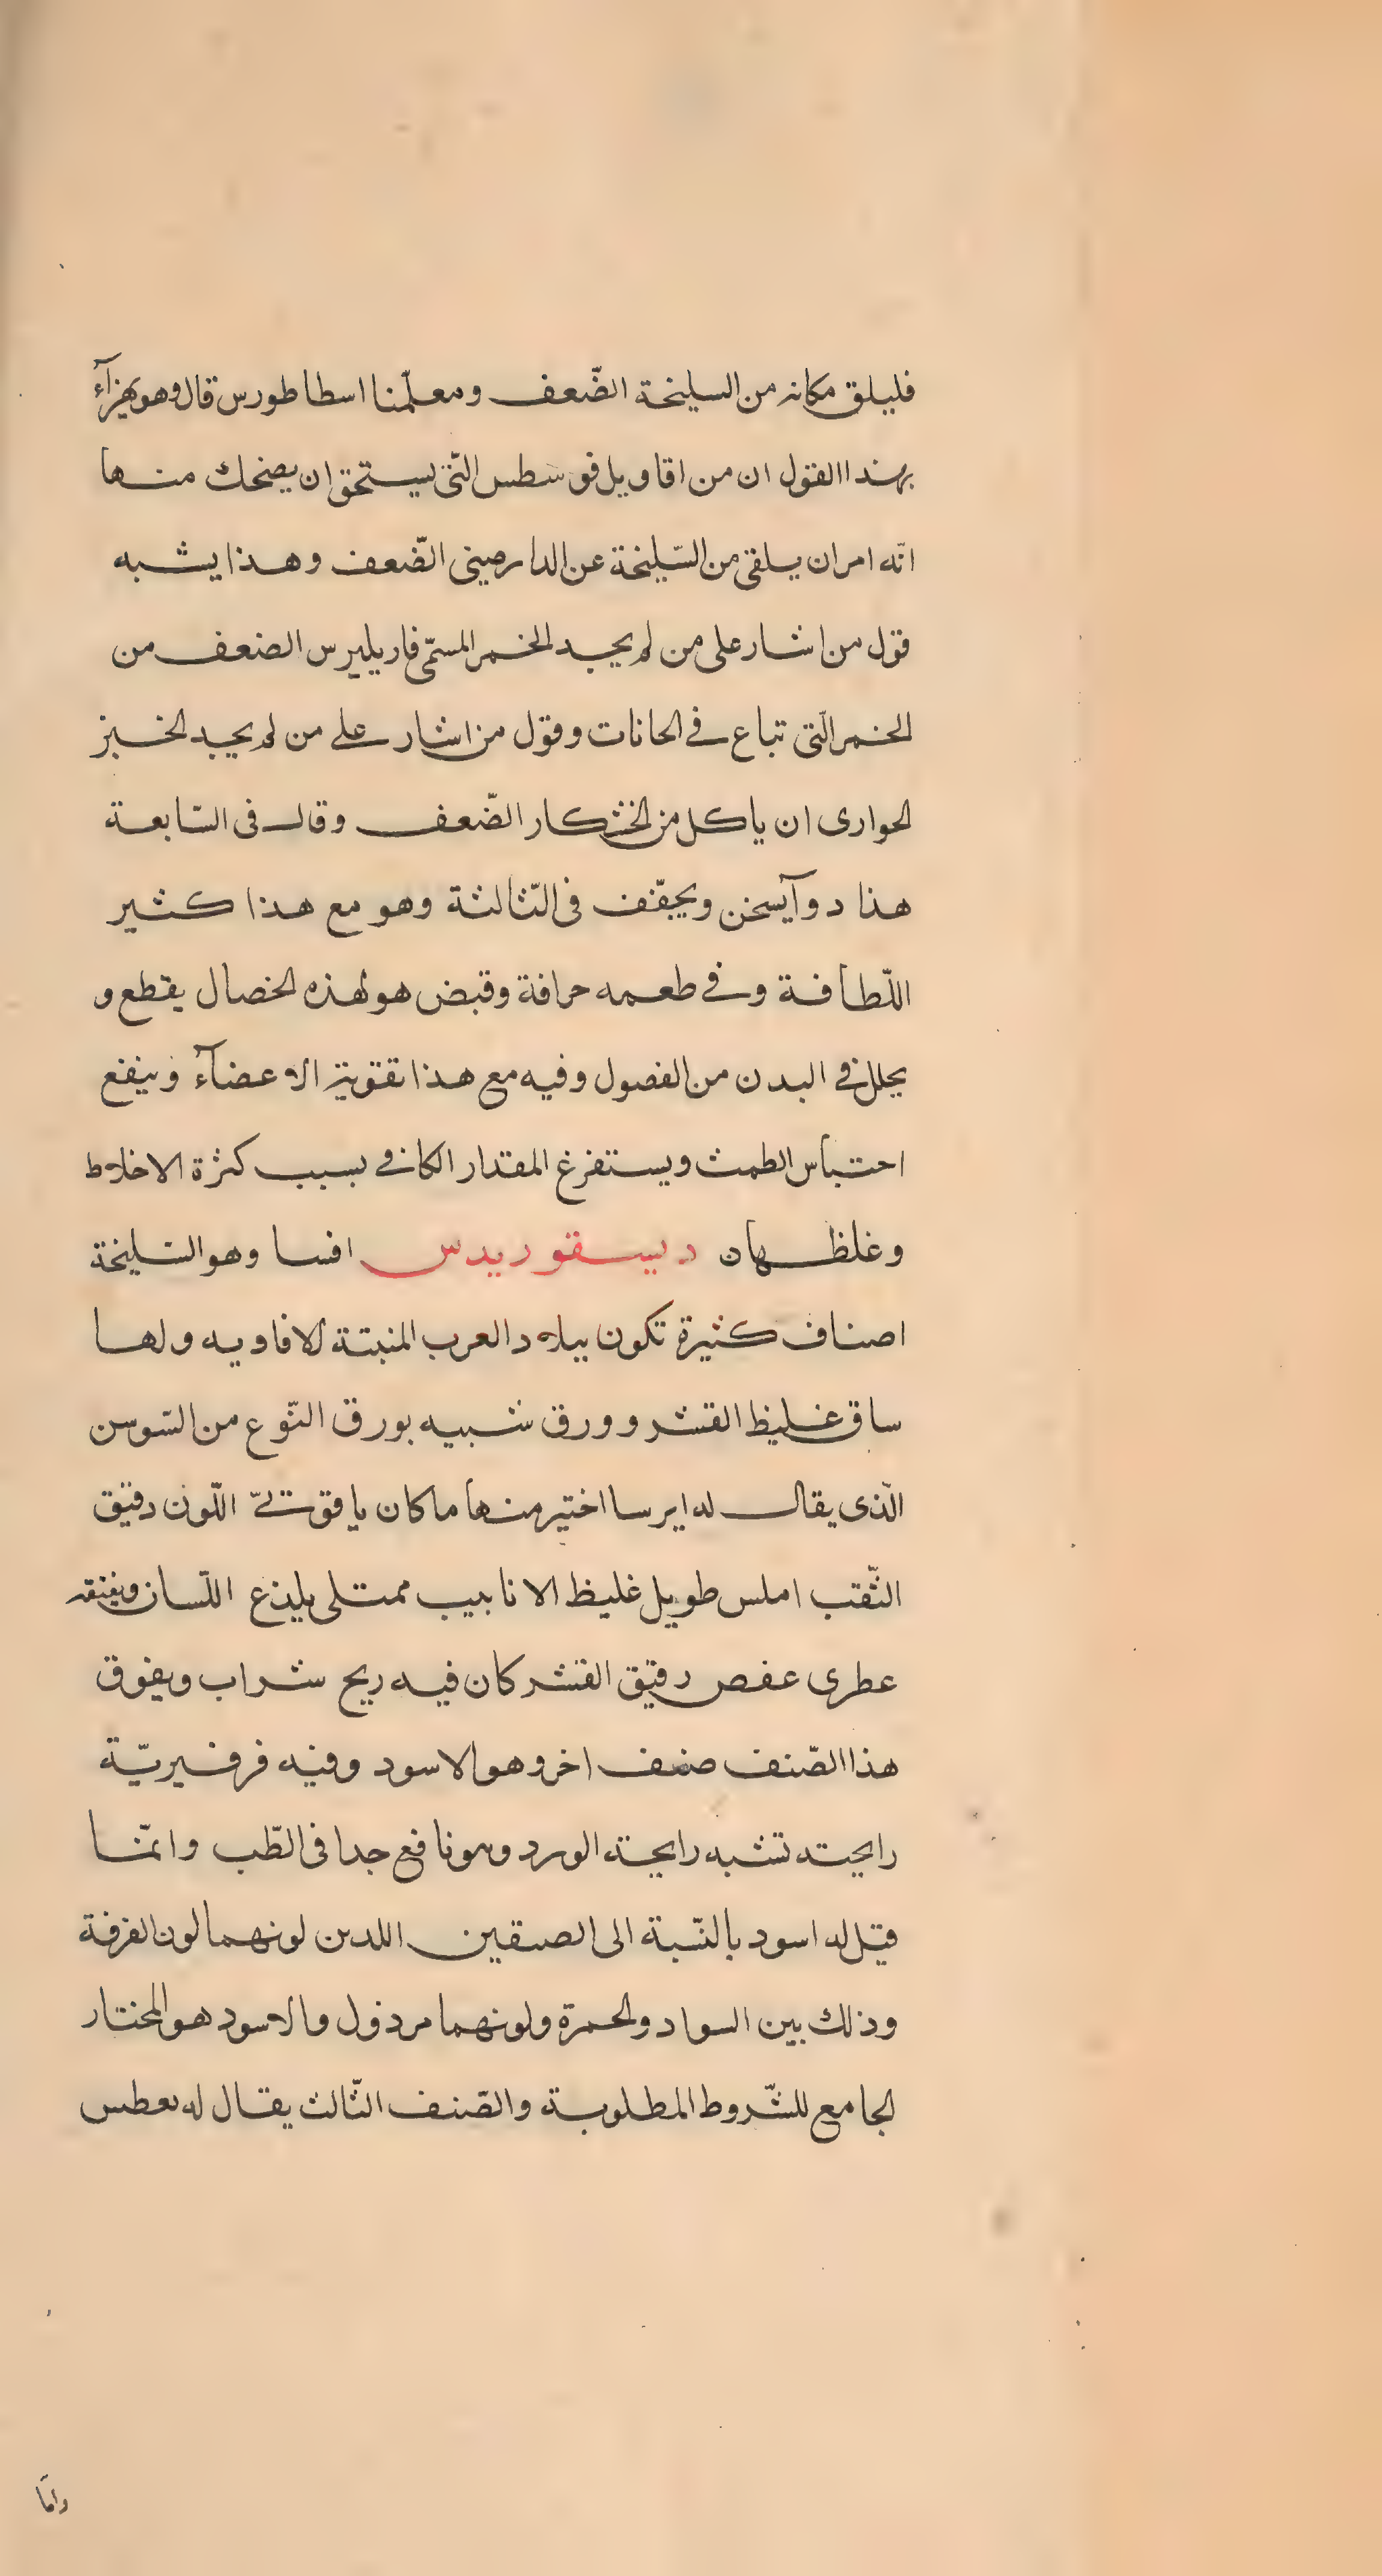 فليلق مكانه من السليخة الضّعف ومعلّمنا اسطاطورس قال وهو يهزآء
بهذا القول ان من اقاويل فوسطس الّتى يستحق ان يضحك منها
انّه امر ان يلقى من السّليخة عن الدارصينى الضّعف وهذا يشبه
قول من اشار على من لم يجد الخمر المسمّى فاريليرس الضعف من
الخمر الّتى تباع فى الحانات وقول من اشار على من لم يجد الخبز
الحوارى ان ياكل من الخشكار الضّعف وقال فى السّابعة
هذا دوآ يسخن ويجفّف فى الثّالثة وهو مع هذا كثير
اللّطافة وفى طعمه حرافة وقبض هو لهذه الخصال يقطع و
يحلل فى البدن من الفصول وفيه مع هذا تقوية الاعضآء وينفع
احتباس الطمث ويستفرغ المقدار الكافى بسبب كثرة الاخلاط
وغلظهان ديسقوريدس افسا وهو السّليخة
اصناف كثيرة تكون ببلاد العرب المنبتة للافاويه ولها
ساق غليظ القشر وورق شبيه بورق النّوع من السّوسن
الّذى يقال له ايرسا اختير منها ما كان ياقوتىّ اللّون دقيق
الثّقب املس طويل غليظ الانابيب ممتلى يلذع اللّسان
عطرى عفص رقيق القشر كان فيه ريح شراب ويفوق
هذا الصّنف صنف اخر وهو الاسود وفيه فرفيريّة
رايحته تشبه رايحة الورد وهو نافع جدا فى الطّب وانّما
قيل له اسود بالنّسبة الى الصنفين اللدىن لونهما لون القرفة
وذلك بين السواد والحمرة ولونهما مرذول والاسود هو المختار
الجامع للشّروط المطلوبة والصّنف الثّالث يقال له ىعطس
وامّا